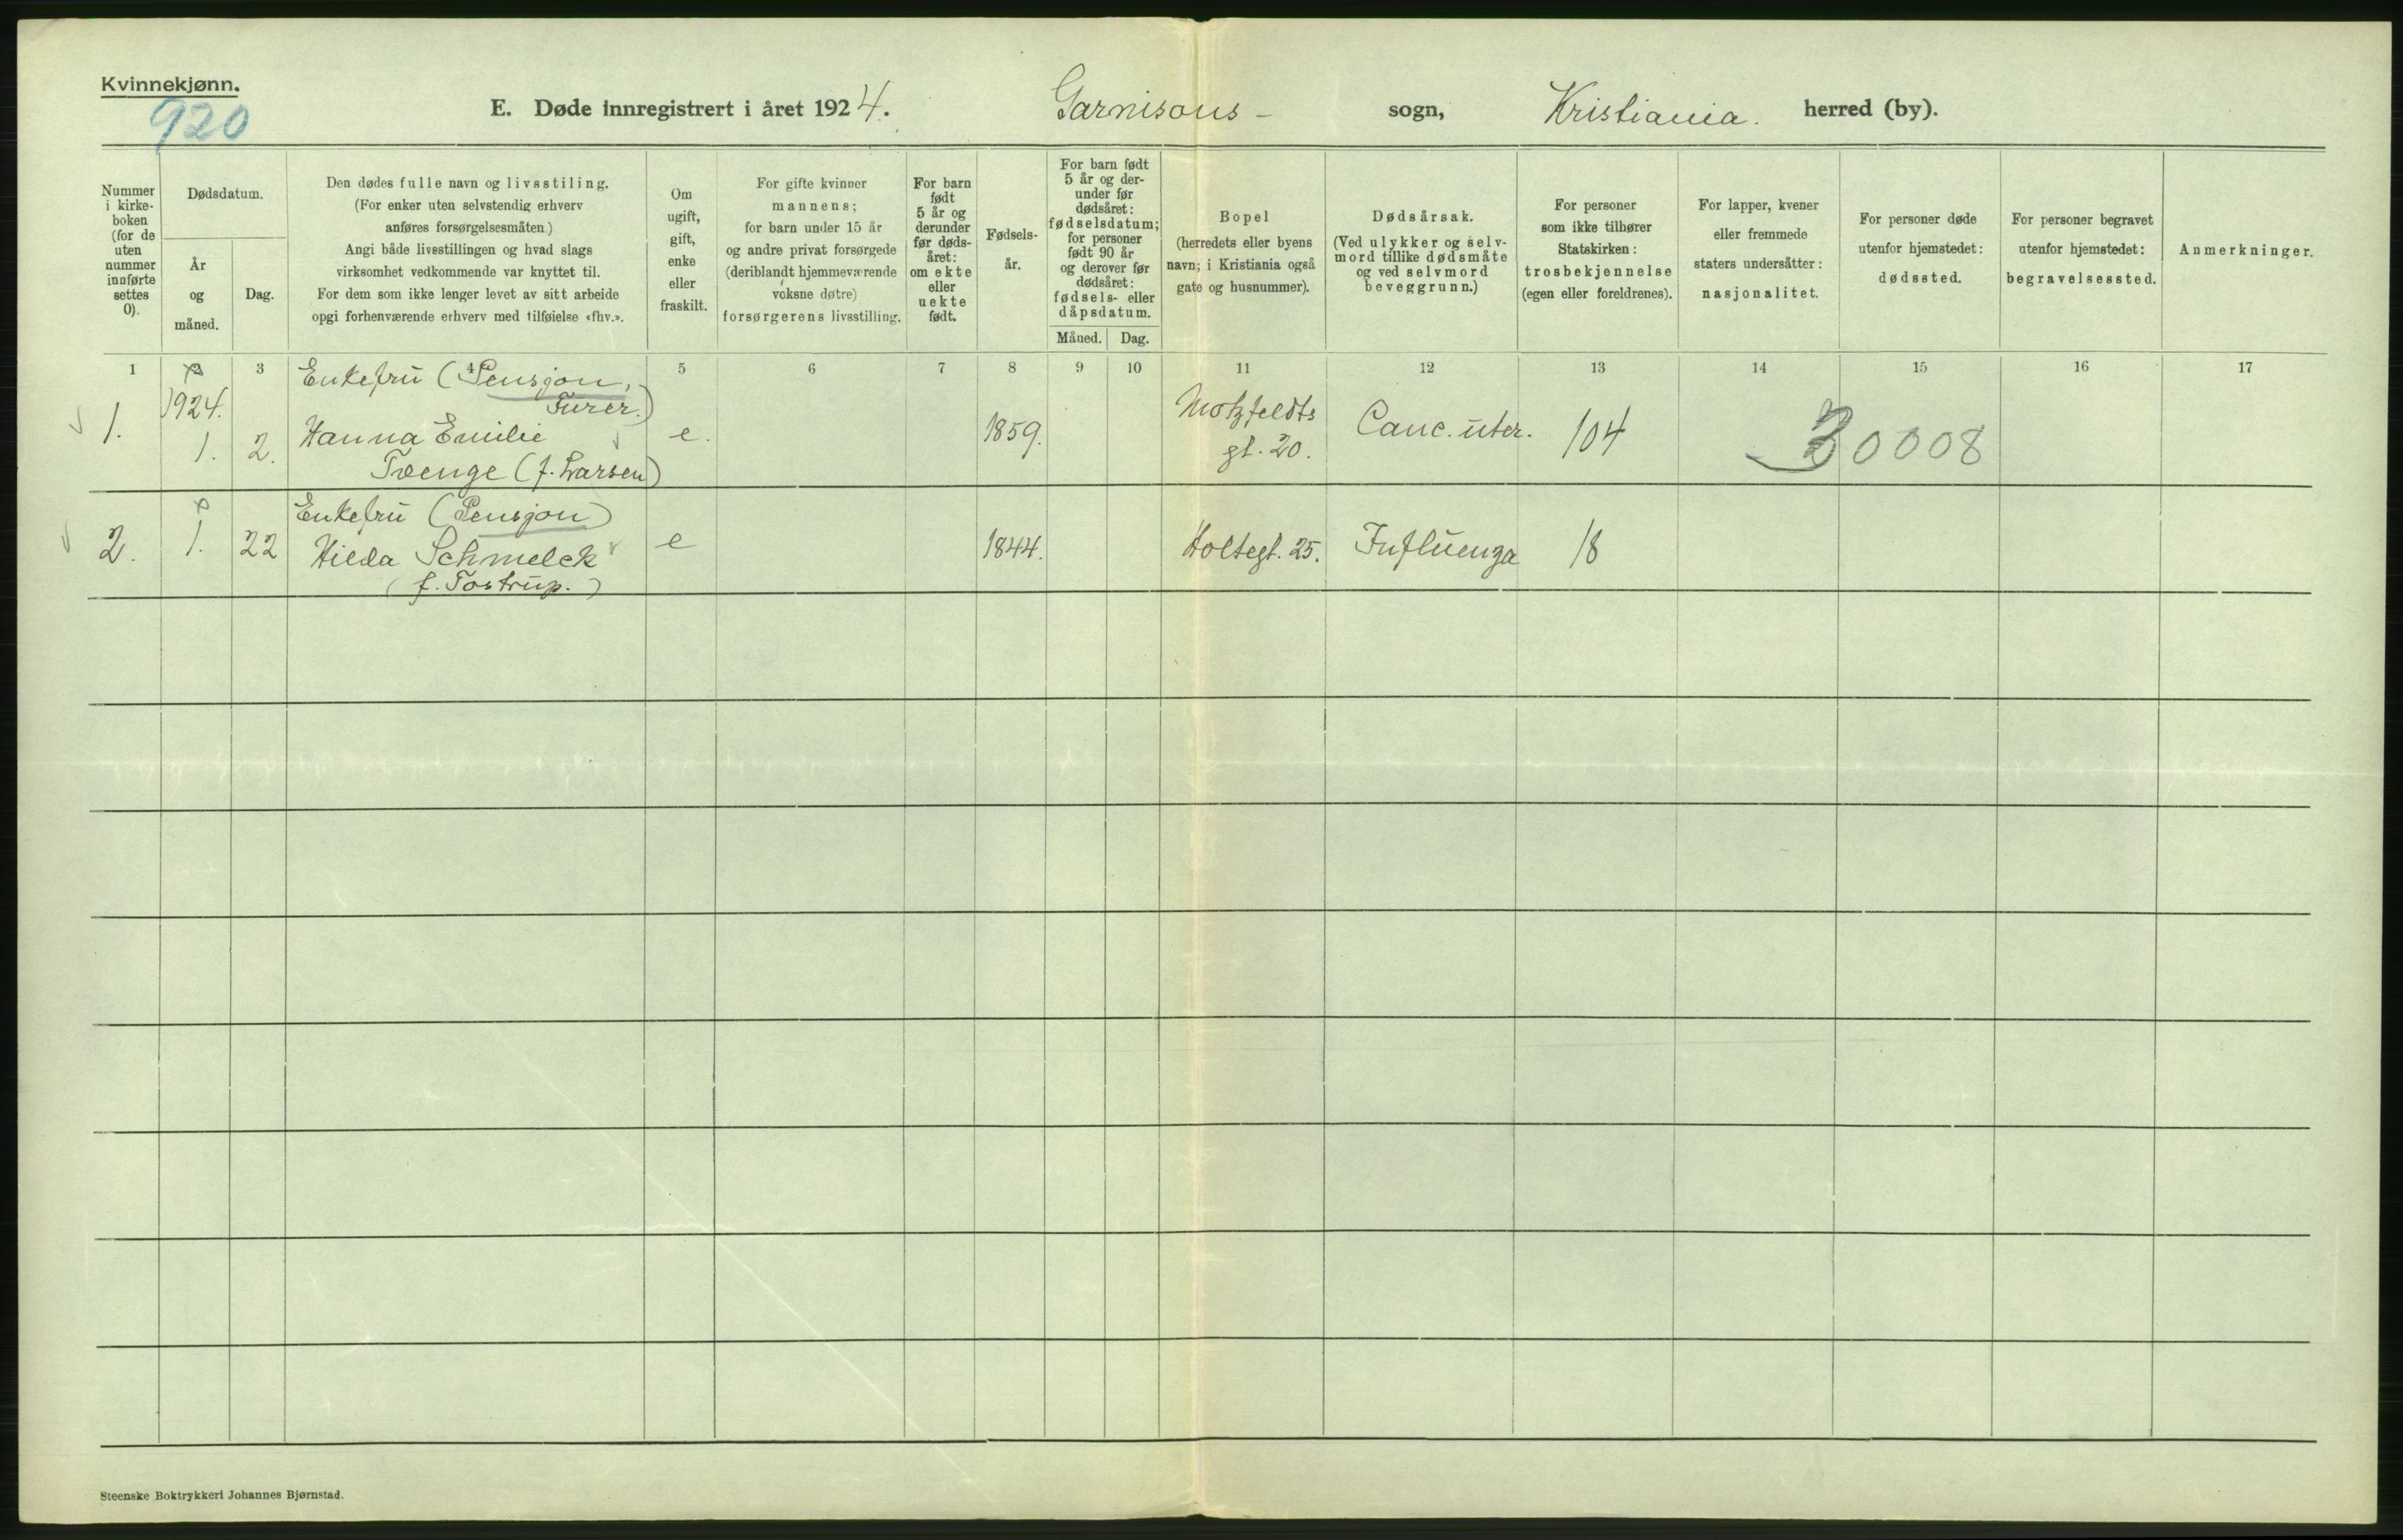 Kvinnekjønn.
920
E. Døde innregistrert i året 1924. Garnisons- sogn, Kristiania. herred (by).
Nummer
i kirke-
boken
(for de
uten
nummer
innførte
settes
0).
Dødsdatum.
År
og
måned.
Dag.
Den dødes fulle navn og livsstiling.
(For enker uten selvstendig erhverv
anføres forsørgelsesmåten.)
Angi både livsstillingen og hvad slags
virksomhet vedkommende var knyttet til.
For dem som ikke lenger levet av sitt arbeide
opgi forhenværende erhverv med tilføielse «fhv.».
Om
ugift,
gift,
enke
eller
fraskilt.
For gifte kvinner
mannens;
for barn under 15 år
og andre privat forsørgede
(deriblandt hjemmeværende
voksne døtre)
forsørgerens livsstilling.
For barn
født
5 år og
derunder
før døds-
året:
om ekte
eller
uekte
født.
Fødsels-
år.
For barn født
5 år og der-
under før
dødsåret:
fødselsdatum;
for personer
født 90 år
og derover før
dødsåret:
fødsels- eller
dåpsdatum.
Måned. Dag.
Bopel
(herredets eller byens
navn; i Kristiania også
gate og husnummer).
Dødsårsak.
(Ved ulykker og selv-
mord tillike dødsmåte
og ved selvmord
beveggrunn.)
For personer
som ikke tilhører
Statskirken:
trosbekjennelse
(egen eller foreldrenes).
For lapper, kvener
eller fremmede
staters undersåtter:
nasjonalitet.
For personer døde
utenfor hjemstedet:
dødssted.
For personer begravet
utenfor hjemstedet:
begravelsessted.
Anmerkninger.
1 2 3 4 5 6 7 8 9 10 11 12 13 14 15 16 17
Enkefru (Pensjon,
1924.
1. 1. 2. Hanna Emilie e. 1859. Motzfeldts
gt. 20. Canc. uter. 104 30008
Tvenge (f. Larsen)
Enkefru (Pensjon)
2. 1. 22 Hilda Schmelck e 1844. Holtegt. 25. Influenza 18
(f. Tostrup.)
Steenske Boktrykkeri Johannes Bjørnstad.